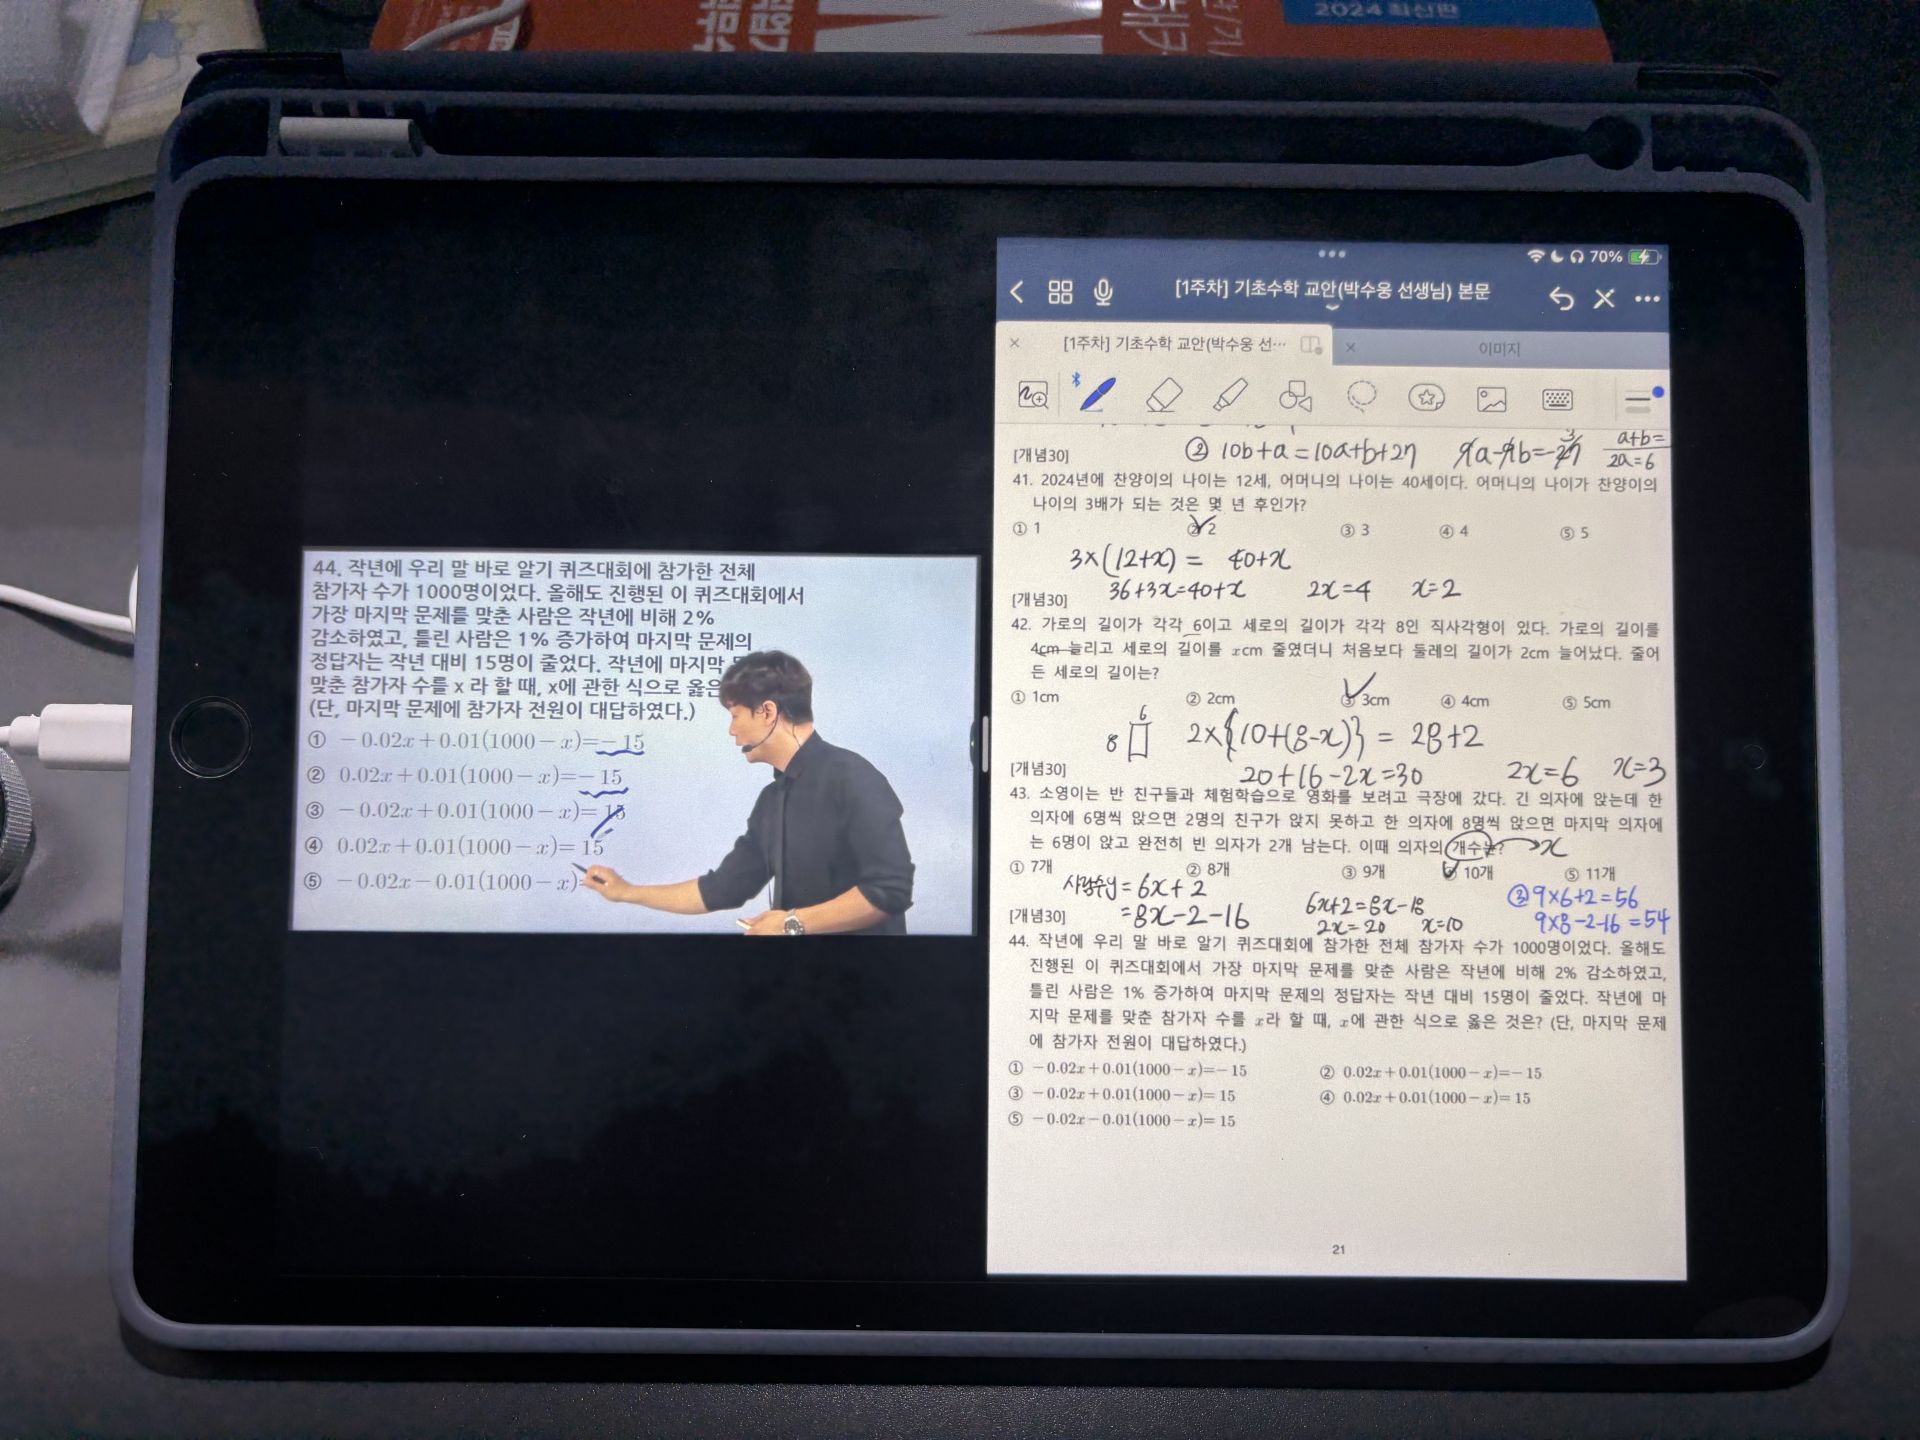 2024 최신판
70%
[1주차] 기초수학 교안(박수웅 선생님) 본문
[1주차] 기초수학 교안(박수웅 선…
이미지
44. 작년에 우리 말 바로 알기 퀴즈대회에 참가한 전체
참가자 수가 1000명이었다. 올해도 진행된 이 퀴즈대회에서
가장 마지막 문제를 맞춘 사람은 작년에 비해 2%
감소하였고, 틀린 사람은 1% 증가하여 마지막 문제의
정답자는 작년 대비 15명이 줄었다. 작년에 마지막
맞춘 참가자 수를 x 라 할 때, x에 관한 식으로 옳은
(단, 마지막 문제에 참가자 전원이 대답하였다.)
① −0.02x+0.01(1000−x)=−15
② 0.02x+0.01(1000−x)=−15
③ −0.02x+0.01(1000−x)= 15
④ 0.02x+0.01(1000−x)= 15
⑤ −0.02x−0.01(1000−x)=
② 10b+a=10a+b+27 9a-9b=-27 3 a+b=
2a=6
[개념30]
41. 2024년에 찬양이의 나이는 12세, 어머니의 나이는 40세이다. 어머니의 나이가 찬양이의
나이의 3배가 되는 것은 몇 년 후인가?
① 1 ② 2 ③ 3 ④ 4 ⑤ 5
3×(12+x) = 40+x
36+3x=40+x 2x=4 x=2
[개념30]
42. 가로의 길이가 각각 6이고 세로의 길이가 각각 8인 직사각형이 있다. 가로의 길이를
4cm 늘리고 세로의 길이를 xcm 줄였더니 처음보다 둘레의 길이가 2cm 늘어났다. 줄어
든 세로의 길이는?
① 1cm ② 2cm ③ 3cm ④ 4cm ⑤ 5cm
6
8 2×{10+(8-x)} = 28+2
20+16-2x=30 2x=6 x=3
[개념30]
43. 소영이는 반 친구들과 체험학습으로 영화를 보려고 극장에 갔다. 긴 의자에 앉는데 한
의자에 6명씩 앉으면 2명의 친구가 앉지 못하고 한 의자에 8명씩 앉으면 마지막 의자에
는 6명이 앉고 완전히 빈 의자가 2개 남는다. 이때 의자의 개수는? x
① 7개 ② 8개 ③ 9개 ④ 10개 ⑤ 11개
사람수y = 6x+2 6x+2=8x-18 ③ 9×6+2=56
=8x-2-16 2x=20 x=10 9×8-2-16=54
[개념30]
44. 작년에 우리 말 바로 알기 퀴즈대회에 참가한 전체 참가자 수가 1000명이었다. 올해도
진행된 이 퀴즈대회에서 가장 마지막 문제를 맞춘 사람은 작년에 비해 2% 감소하였고,
틀린 사람은 1% 증가하여 마지막 문제의 정답자는 작년 대비 15명이 줄었다. 작년에 마
지막 문제를 맞춘 참가자 수를 x라 할 때, x에 관한 식으로 옳은 것은? (단, 마지막 문제
에 참가자 전원이 대답하였다.)
① −0.02x+0.01(1000−x)=−15 ② 0.02x+0.01(1000−x)=−15
③ −0.02x+0.01(1000−x)= 15 ④ 0.02x+0.01(1000−x)= 15
⑤ −0.02x−0.01(1000−x)= 15
21